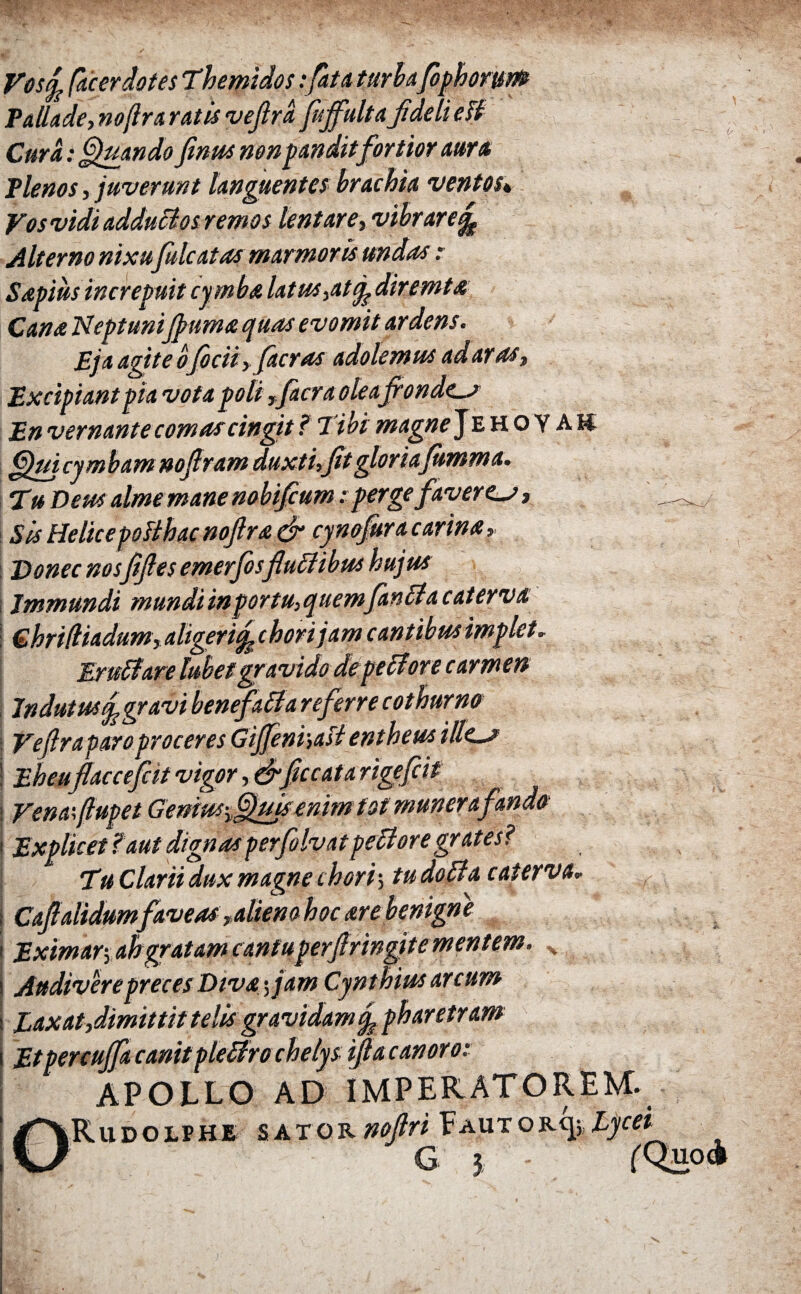 Vosq́ꝫ ſacerdotes Themidos: ſata turba ſophorum
Pallade, noſtra ratis veſtrâ ſuffulta fideli eſt
Curâ: Quando ſinus non pandit fortior aura
Plenos, juverunt languentes brachia ventos.
Vos vidi adductos remos lentare, vibrareq́ꝫ
Alterno nixu ſulcatas marmoris undas:
Sæpiùs increpuit cymbæ latus, atq́ꝫ diremtæ
Canæ Neptuni ſpumæ quas evomit ardens.
Eja agite ô ſocii, ſacras adolemus ad aras,
Excipiant pia vota poli, ſacra olea fronde
En vernante comas cingit? Tibi magne JEHOVAH
Qui cymbam noſtram duxti, ſit gloria ſumma.
Tu Deus alme mane nobiſcum: perge favere,
Sis Helice poſthac noſtræ & cynoſura carinæ,
Donec nos ſiſtes emerſos fluctibus hujus
Immundi mundi in portu, quem ſancta caterva
Chriſtiadum, aligeriq́ꝫ chori jam cantibus implet.
Eructare lubet gravido de pectore carmen
Indutusq́ꝫ gravi benefacta referre cothurno
Veſtra paro proceres Giſſeni; aſt entheus ille
Eheu flacceſcit vigor, & ſiccata rigeſcit
Vena; ſtupet Genius; Quis enim tot munera fando
Explicet? aut dignas perſolvat pectore grates?
Tu Clarii dux magne chori; tu docta caterva
Caſtalidum faveas, alieno hoc ære benignè
Eximar; ah gratam cantu perſtringite mentem.
Audivêre preces Divæ; jam Cynthius arcum
Laxat, dimittit telis gravidamq́ꝫ pharetram
Et percuſſa canit plectro chelys iſta canoro:
APOLLO AD IMPERATOREM.
O RUDOLPHE SATOR noſtri FAUTORq́; Lycei
G 3 (Quod